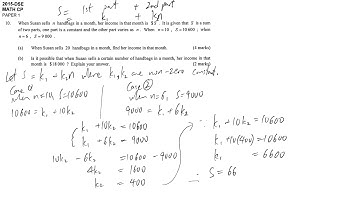 2015-DSE
MATH CP
PAPER 1
S = 1st part + 2nd part
k₁ + k₂n
10. When Susan sells n handbags in a month, her income in that month is $S. It is given that S is a sum
of two parts, one part is a constant and the other part varies as n. When n = 10, S = 10600; when
n = 6, S = 9000.
(a) When Susan sells 20 handbags in a month, find her income in that month. (4 marks)
(b) Is it possible that when Susan sells a certain number of handbags in a month, her income in that
month is $18000? Explain your answer. (2 marks)
Let S = k₁ + k₂n where k₁, k₂ are non-zero constant.
Case ①
when n=10, S=10600
10600 = k₁ + 10k₂
Case ②
when n=6, S=9000
9000 = k₁ + 6k₂
k₁ + 10k₂ = 10600
k₁ + 6k₂ = 9000
10k₂ - 6k₂ = 10600 - 9000
4k₂ = 1600
k₂ = 400
∵ k₁ + 10k₂ = 10600
k₁ + 10(400) = 10600
k₁ = 6600
∴ S = 66